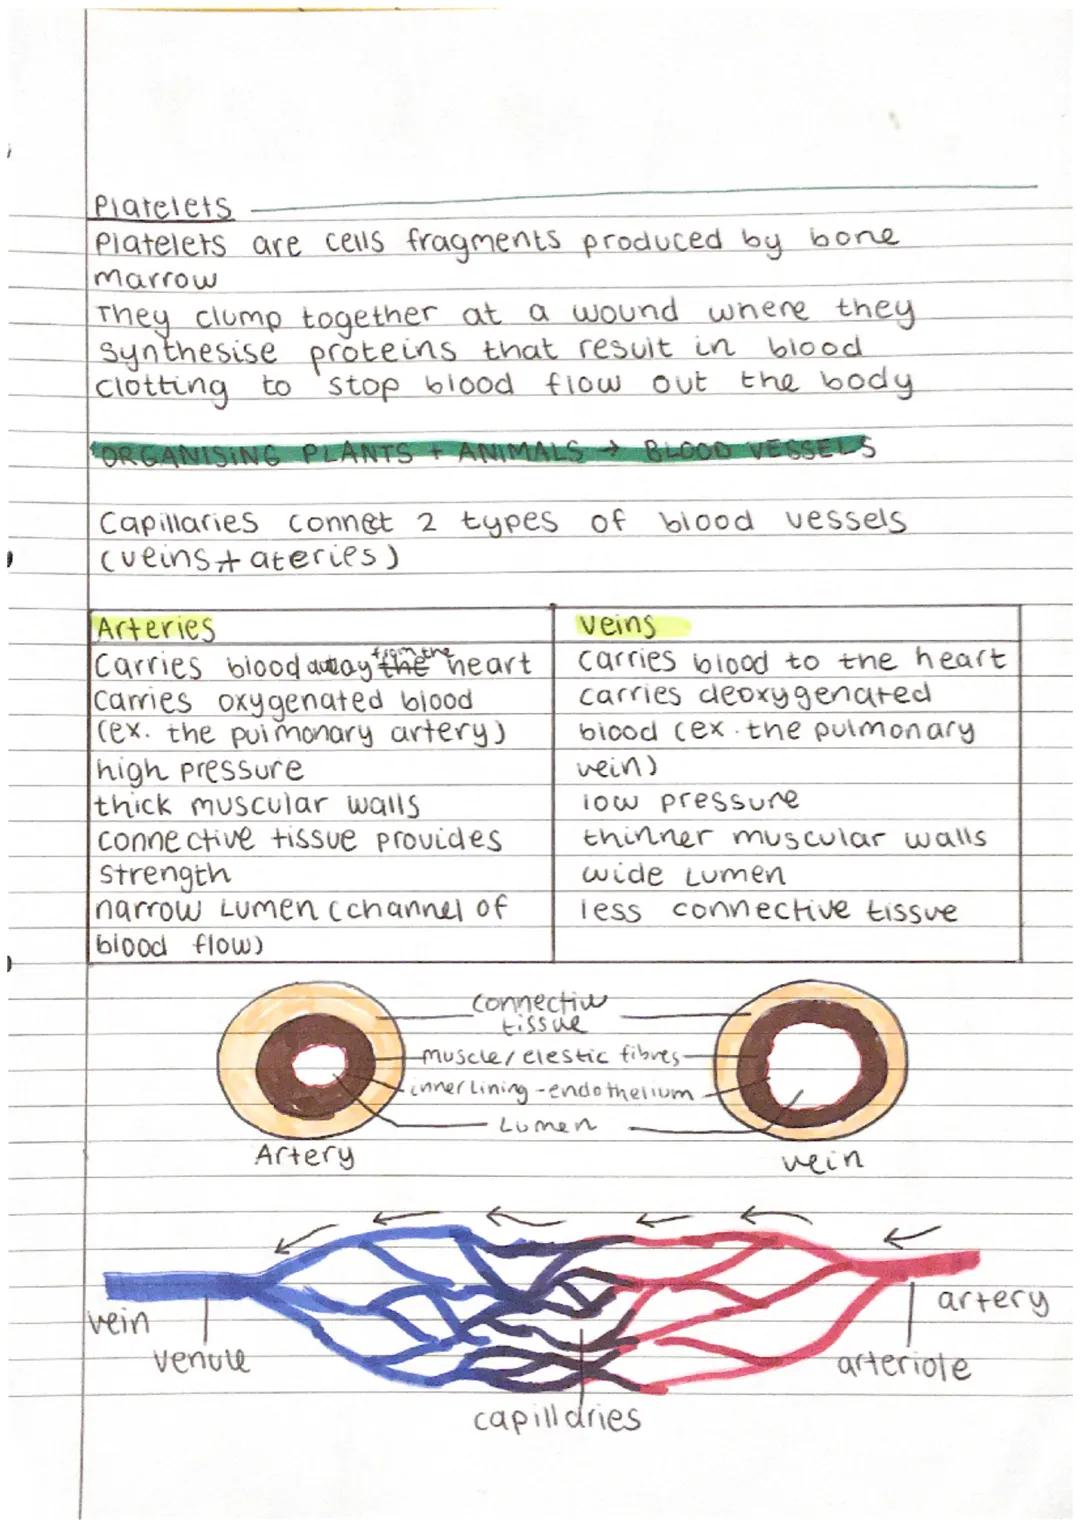 Platelets
Platelets are cells fragments produced by bone
marrow
They clump together at a wound where they
synthesise proteins that result in blood
clotting to stop blood flow out the body
ORGANISING PLANTS + ANIMALS → BLOOD VESSELS
Capillaries connet 2 types of blood vessels
(veins + ateries)
Arteries
Carries blood away from the the heart
Carries oxygenated blood
(ex. the pulmonary artery)
high pressure
thick muscular walls
connective tissue provides
strength
narrow Lumen (channel of
blood flow)
Veins
carries blood to the heart
carries deoxygenated
blood (ex. the pulmonary
vein)
low pressure
thinner muscular walls
wide Lumen
less connective tissue
connective
tissue
muscle/elestic fibres
inner lining - endothelium
Lumen
Artery
vein
vein
venule
capillaries
arteriole
artery